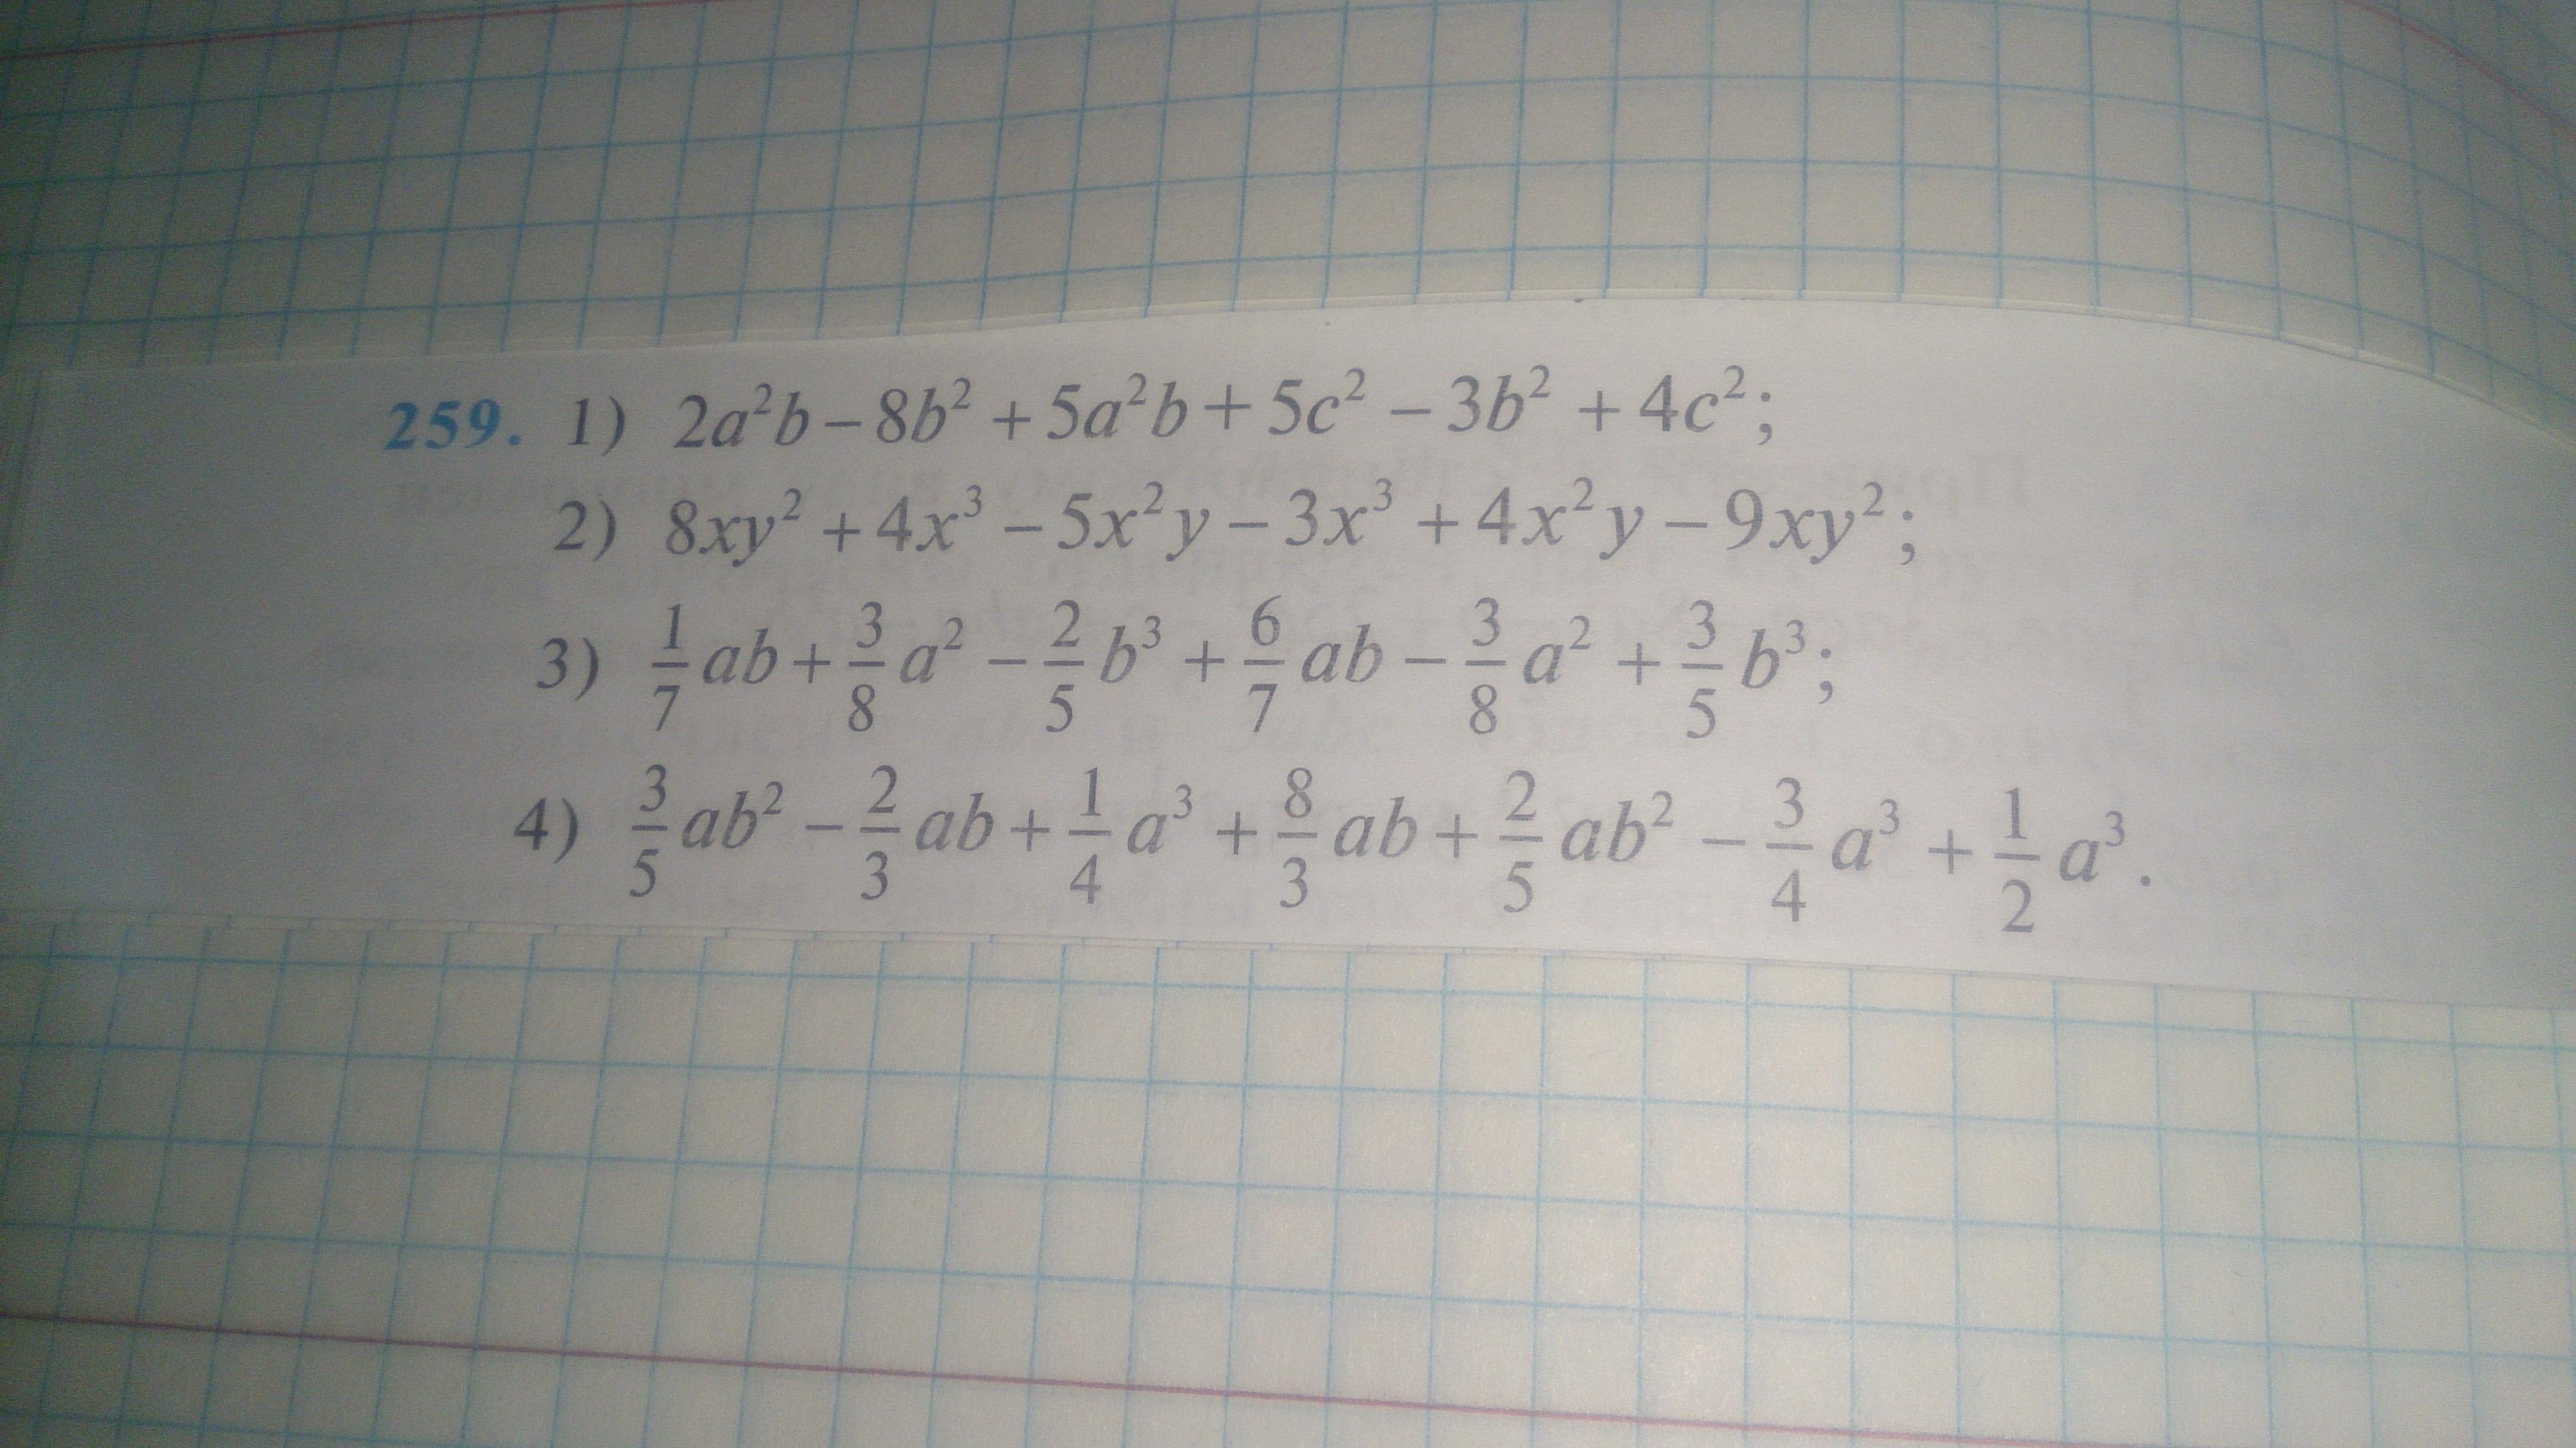 259. 1) 2a²b – 8b² + 5a²b + 5c² – 3b² + 4c²;
2) 8xy² + 4x³ – 5x²y – 3x³ + 4x²y – 9xy²;
3) 1/7 ab + 3/8 a² – 2/5 b³ + 6/7 ab – 3/8 a² + 3/5 b³;
4) 3/5 ab² – 2/3 ab + 1/4 a³ + 8/3 ab + 2/5 ab² – 3/4 a³ + 1/2 a³.